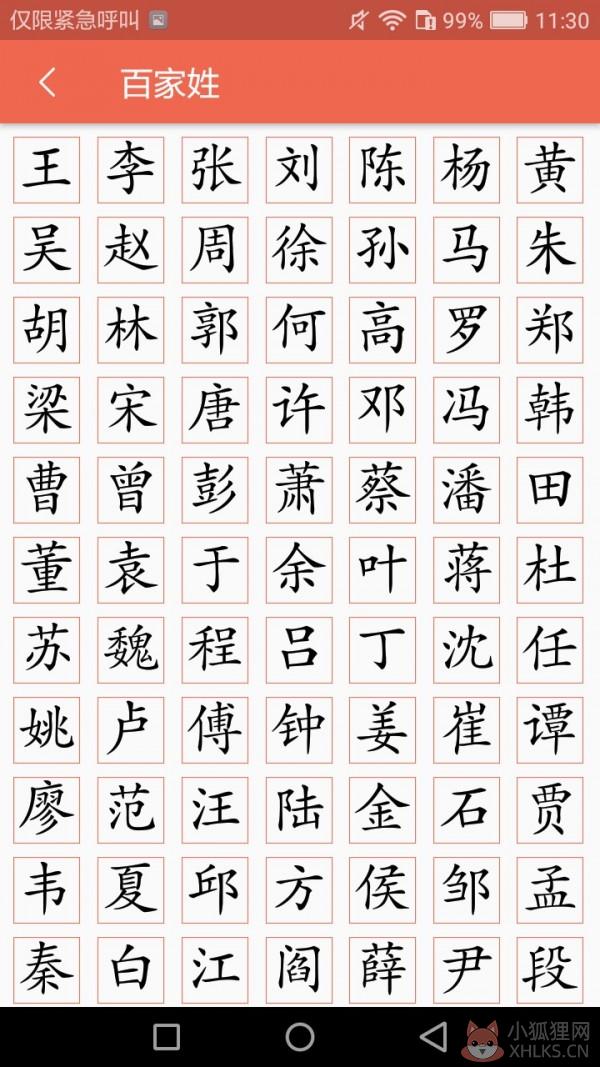 仅限紧急呼叫 99% 11:30
百家姓
王 李 张 刘 陈 杨 黄
吴 赵 周 徐 孙 马 朱
胡 林 郭 何 高 罗 郑
梁 宋 唐 许 邓 冯 韩
曹 曾 彭 萧 蔡 潘 田
董 袁 于 余 叶 蒋 杜
苏 魏 程 吕 丁 沈 任
姚 卢 傅 钟 姜 崔 谭
廖 范 汪 陆 金 石 贾
韦 夏 邱 方 侯 邹 孟
秦 白 江 阎 薛 尹 段
小狐狸网
XHLKS.CN